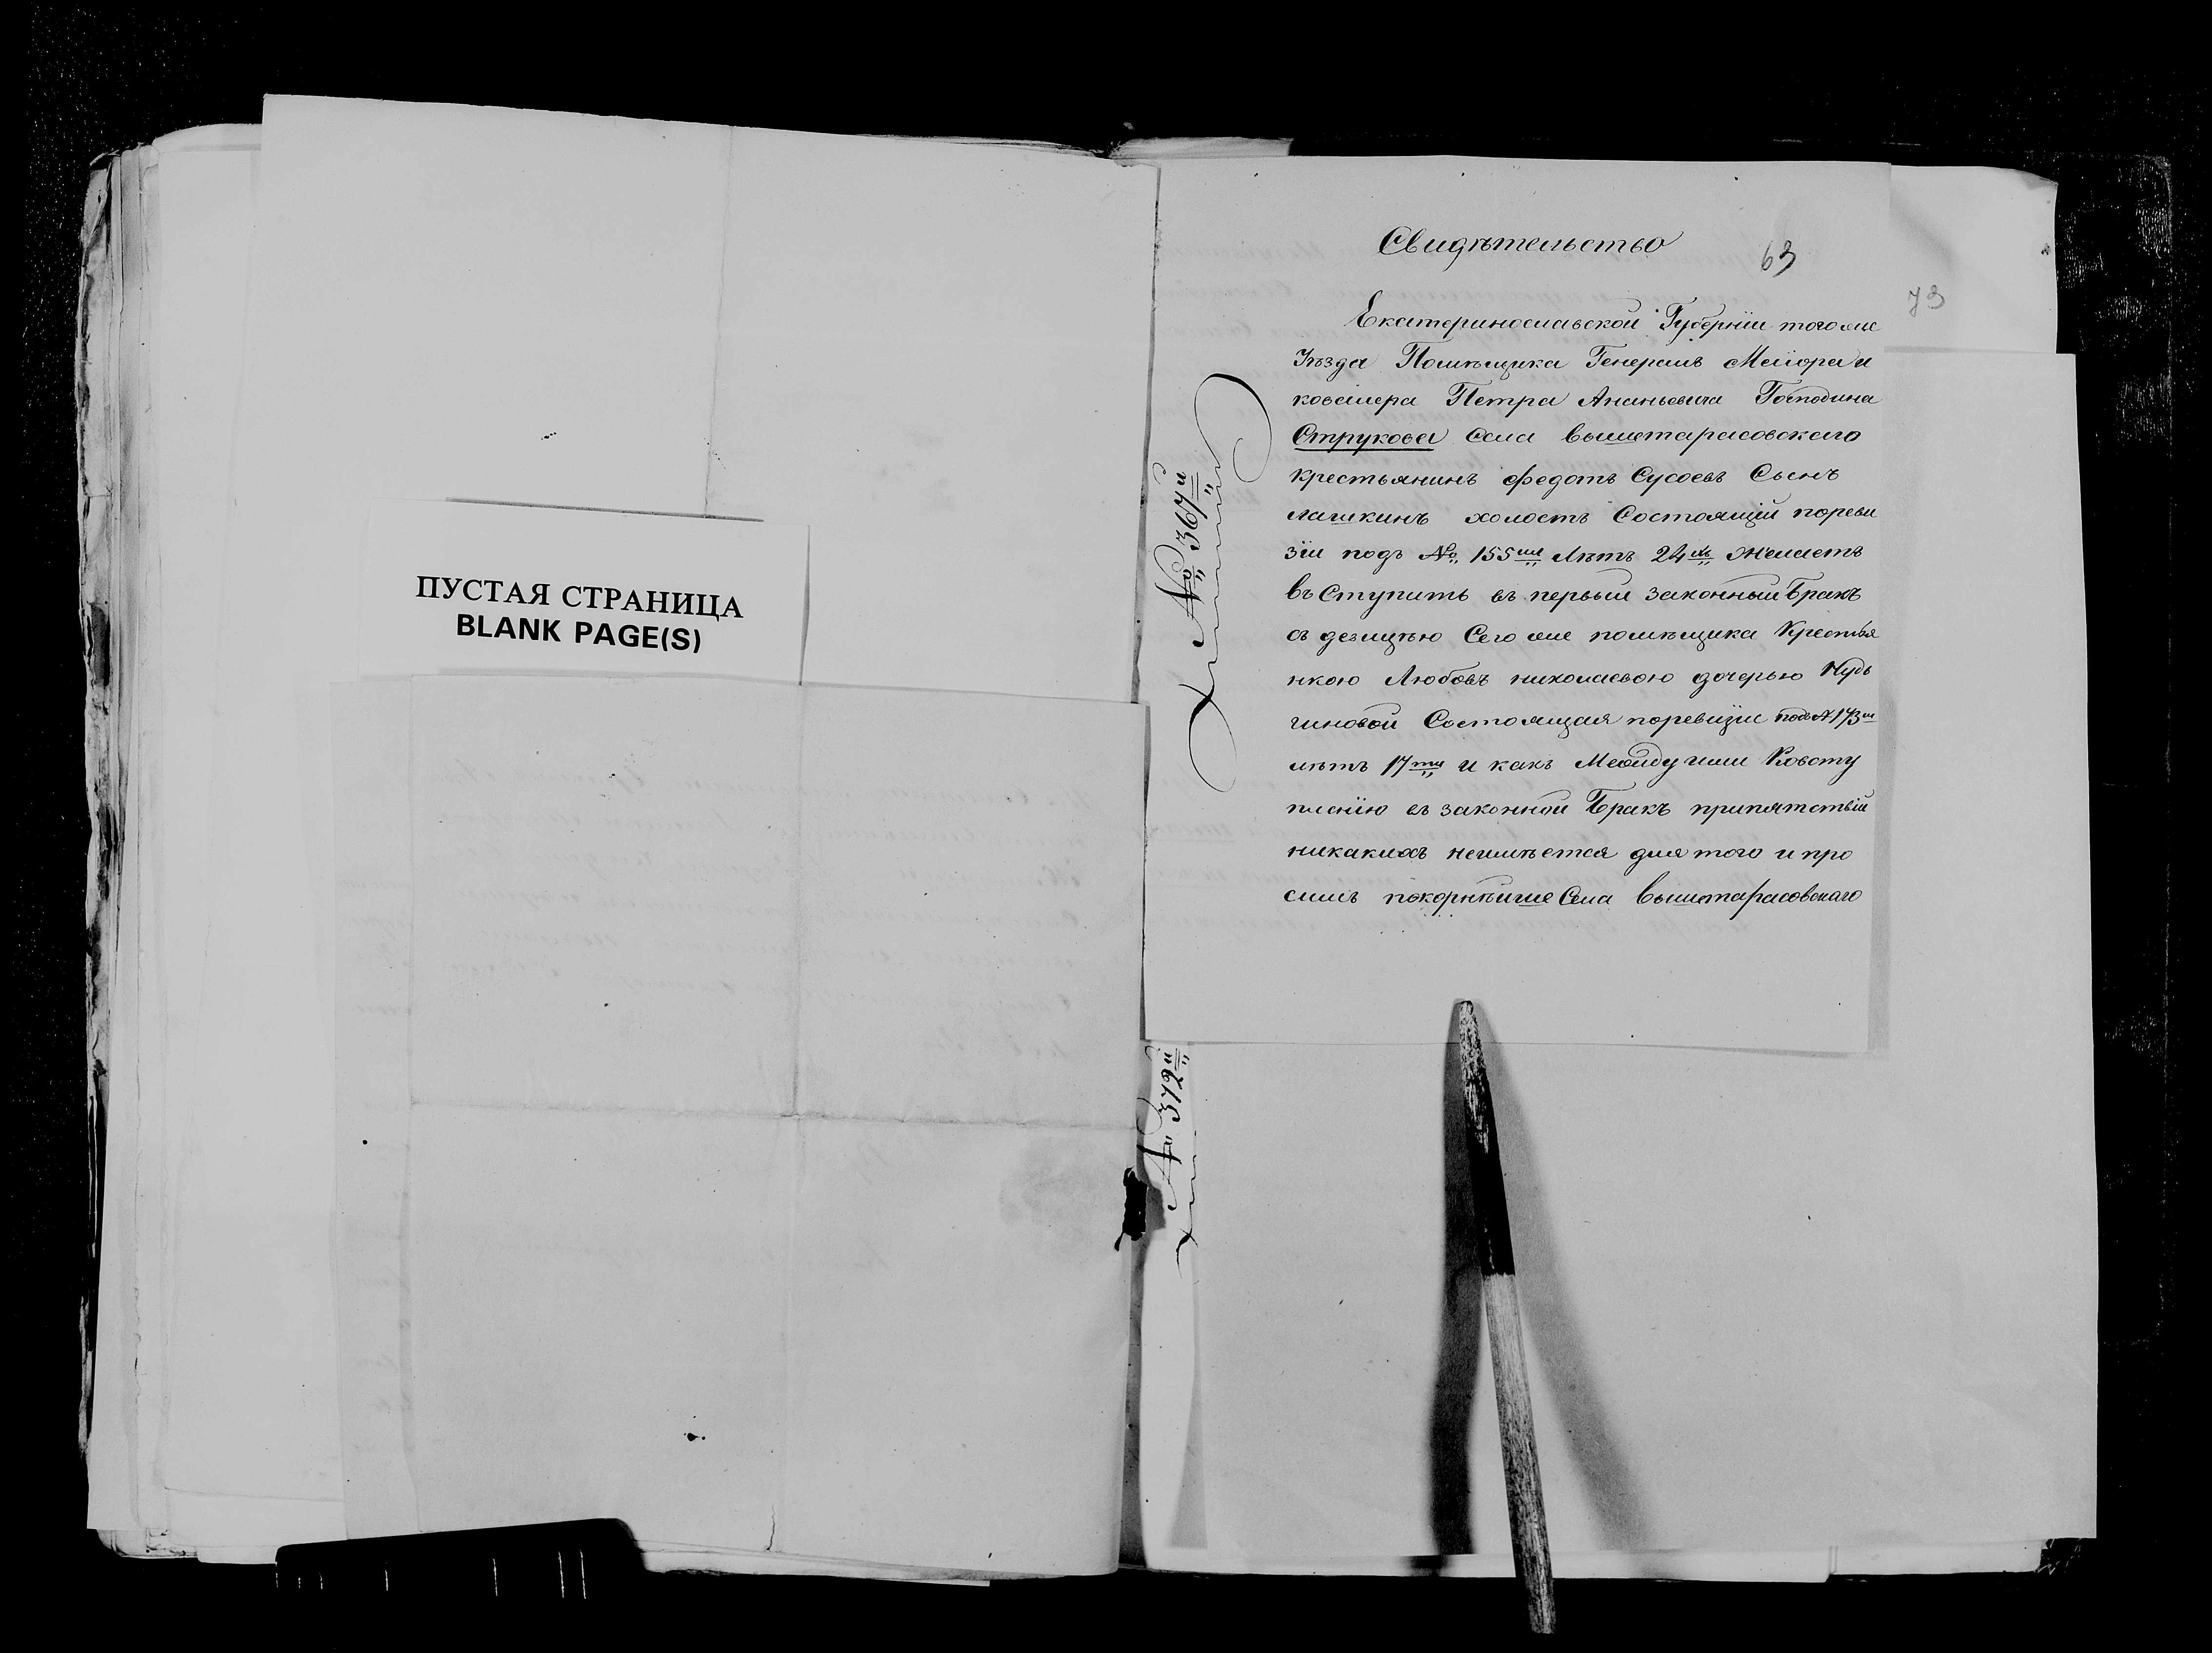 ПУСТАЯ СТРАНИЦА
BLANK PAGE(S)
№ 367й
№ 372й
Свидѣтельство
63
73
Екатериносlавской Губерніи тогоже
Уѣзда Помѣщика Генералъ Маіора и
ковалера Петра Ананьевича Господина
Струкова Села вышетарасовского
крестьянинъ федотъ Сусоевъ Сынъ
лашкинъ холостъ Состоящій пореви
зіи подъ № 155ми Лѣтъ 24хъ Желаетъ
въ Ступить въ первый законный Бракъ
съ девицѣю Сего же помѣщика Крестья
нкою Любовъ николаевою дочерью Кудь
чиновой Состоящая поревизіи подъ № 173ми
лѣтъ 17ти и какъ Между ими Ковсту
пленію въ законной Бракъ припятствій
никакихъ неимѣется для того и про
симъ покорнѣише Села вышетарасовскаго